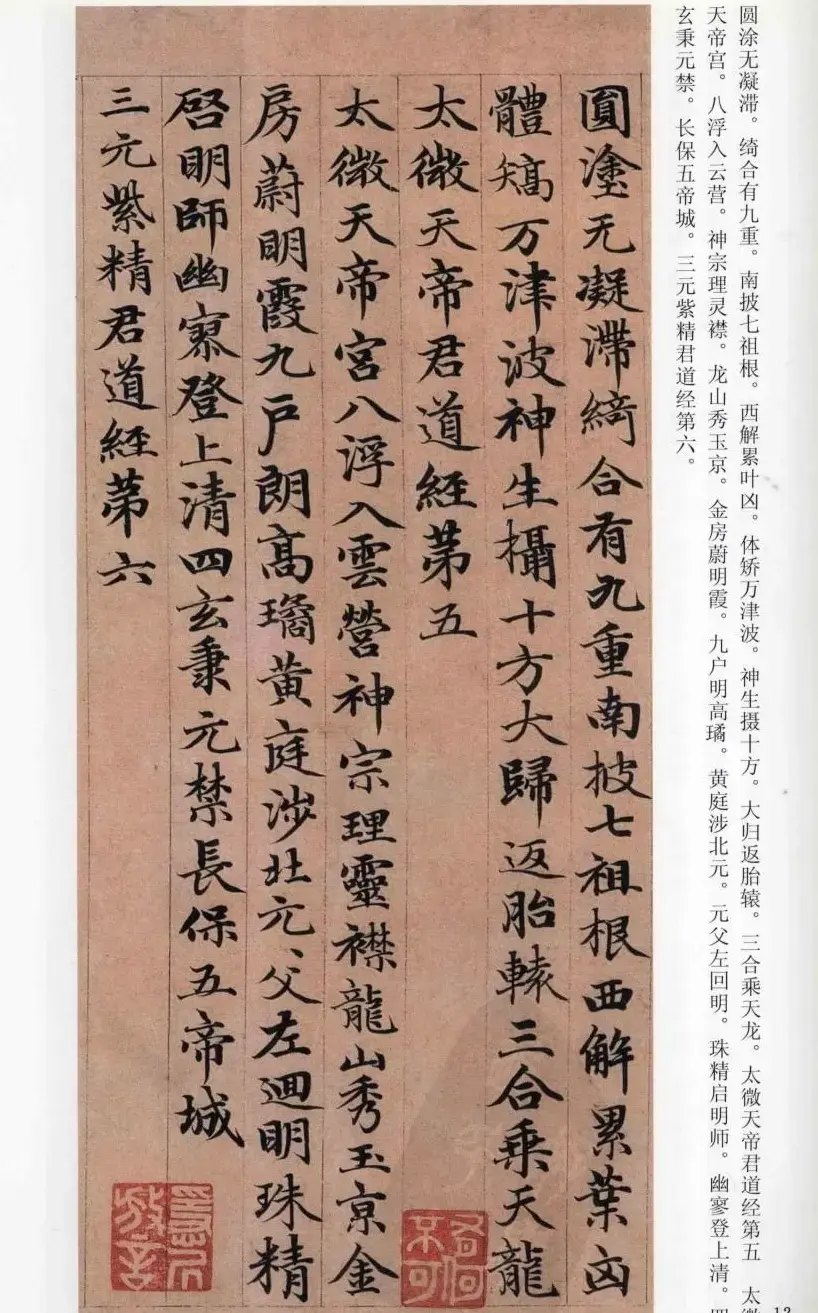 圆涂无凝滞。绮合有九重。南披七祖根。西解累叶凶。体矫万津波。神生摄十方。大归返胎辕。三合乘天龙。太微天帝君道经第五 太微
天帝宫。八浮入云营。神宗理灵襟。龙山秀玉京。金房蔚明霞。九户明高璚。黄庭涉北元。元父左回明。珠精启明师。幽寥登上清。四
玄秉元禁。长保五帝城。三元紫精君道经第六。
圓塗无凝滯綺合有九重南披七祖根西解累葉凶
體矯万津波神生攝十方大歸返胎轅三合乘天龍
太微天帝君道經苐五
太微天帝宮八浮入雲營神宗理靈襟龍山秀玉京金
房蔚明霞九戶朗高璚黃庭涉北元、父左迴明珠精
啓明師幽寥登上清四玄秉元禁長保五帝城
三元紫精君道經苐六